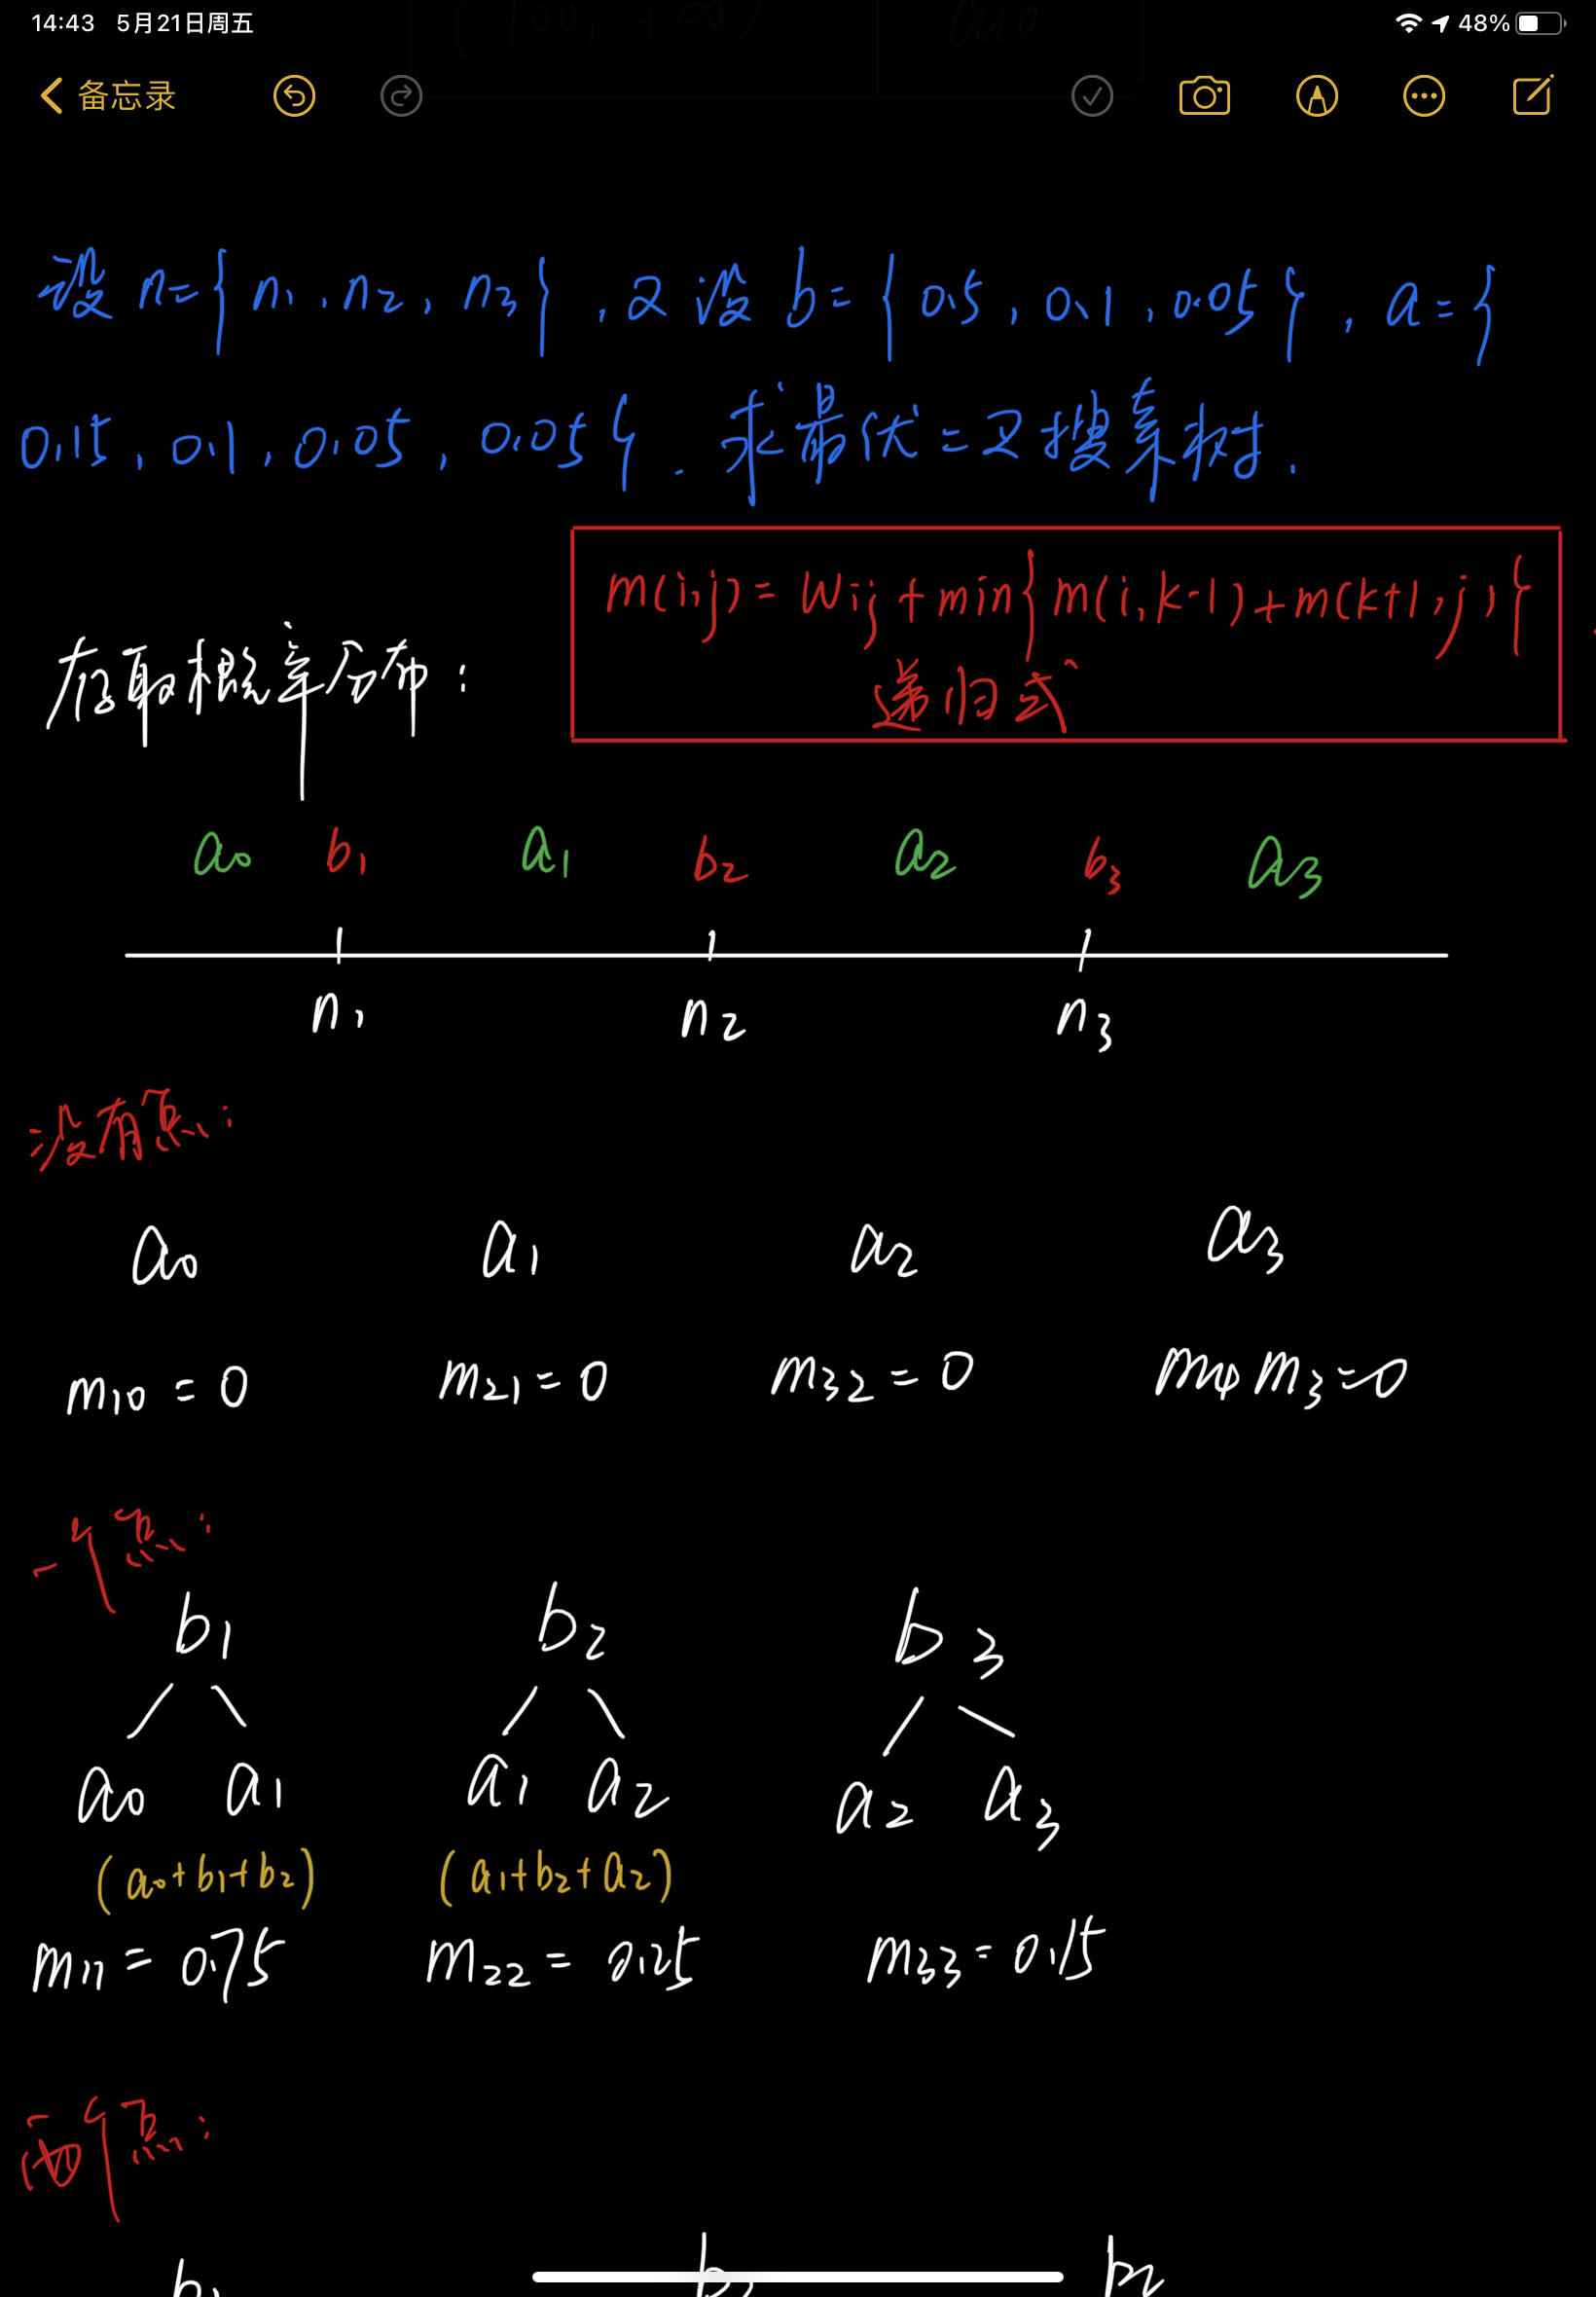 14:43 5月21日周五 48%
备忘录
设 n={ n1, n2, n3 }, 又设 b={ 0.5, 0.1, 0.05 }, a={
0.15, 0.1, 0.05, 0.05}. 求最优二叉搜索树.
m(i,j) = wij + min{ m(i,k-1)+m(k+1,j) }
递归式
存取概率分布:
a0 b1 a1 b2 a2 b3 a3
n1 n2 n3
没有点:
a0 a1 a2 a3
m10 = 0 m21 = 0 m32 = 0 m3=0
一个点:
b1 b2 b3
a0 a1 a1 a2 a2 a3
(a0+b1+b2) (a1+b2+a2)
m11 = 0.75 m22 = 0.25 m33 = 0.15
两个点:
b1 b2